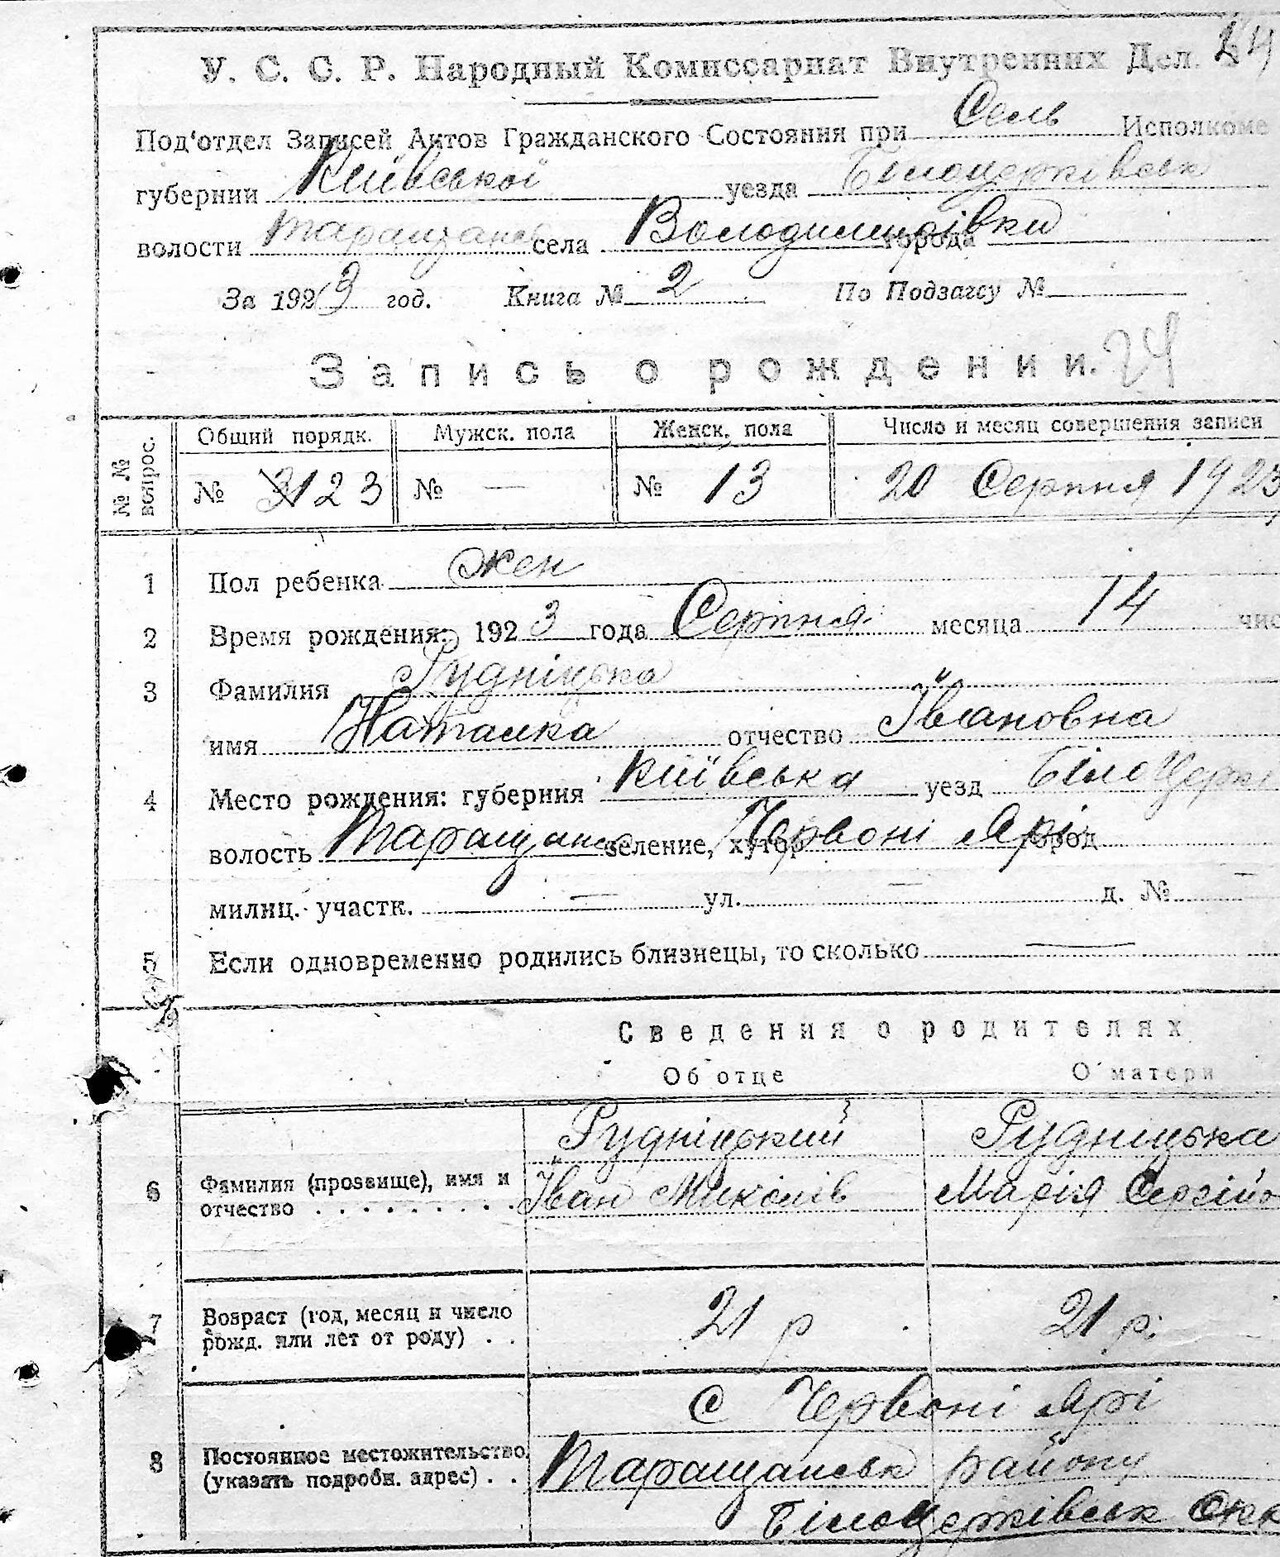 24
У. С. С. Р. Народный Комиссариат Внутренних Дел.
Под'отдел Записей Актов Гражданского Состояния при Сель Исполкоме
губернии Київської уезда Білоцерківськ
волости Таращанськ села Володимирівки города
За 1923 год. Книга № 2 По Подзагсу №
Запись о рождении. 24
№ № вопрос. Общий порядк. Мужск. пола Женск. пола Число и месяц совершения записи
№ 23 № — № 13 20 Серпня 1923
1 Пол ребенка жен
2 Время рождения: 1923 года Серпня месяца 14 чис
3 Фамилия Рудніцька
имя Наталка отчество Івановна
4 Место рождения: губерния Київська уезд БілоЦеркі
волость Таращанс селение, хутор Червоні Ярі город
милиц. участк. — ул. — д. № —
5 Если одновременно родились близнецы, то сколько —
Сведения о родителях
Об отце О матери
Рудніцький Рудніцька
6 Фамилия (прозвище), имя и отчество . . . . . . . . . Іван Миколів Марія Сергійо
7 Возраст (год, месяц и число рожд. или лет от роду) . . 21 р. 21 р.
с Червоні Ярі
8 Постоянное местожительство, (указать подробн. адрес) . . Таращанськ району
Білоцерківськ Окр